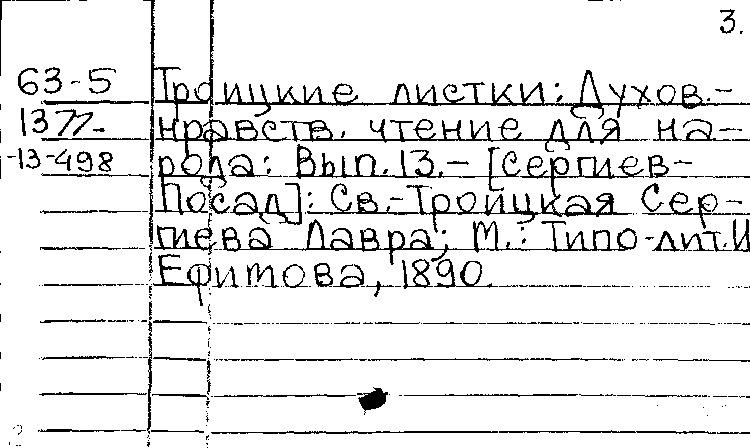 3.
63-5 Троицкие листки: Духов.-
1377- нравств. чтение для на-
-13-498 рода: Вып.13.- [Сергиев-
Посад]: Св.-Троицкая Сер-
гиева Лавра; М.: Типо-лит.И
Ефимова, 1890.